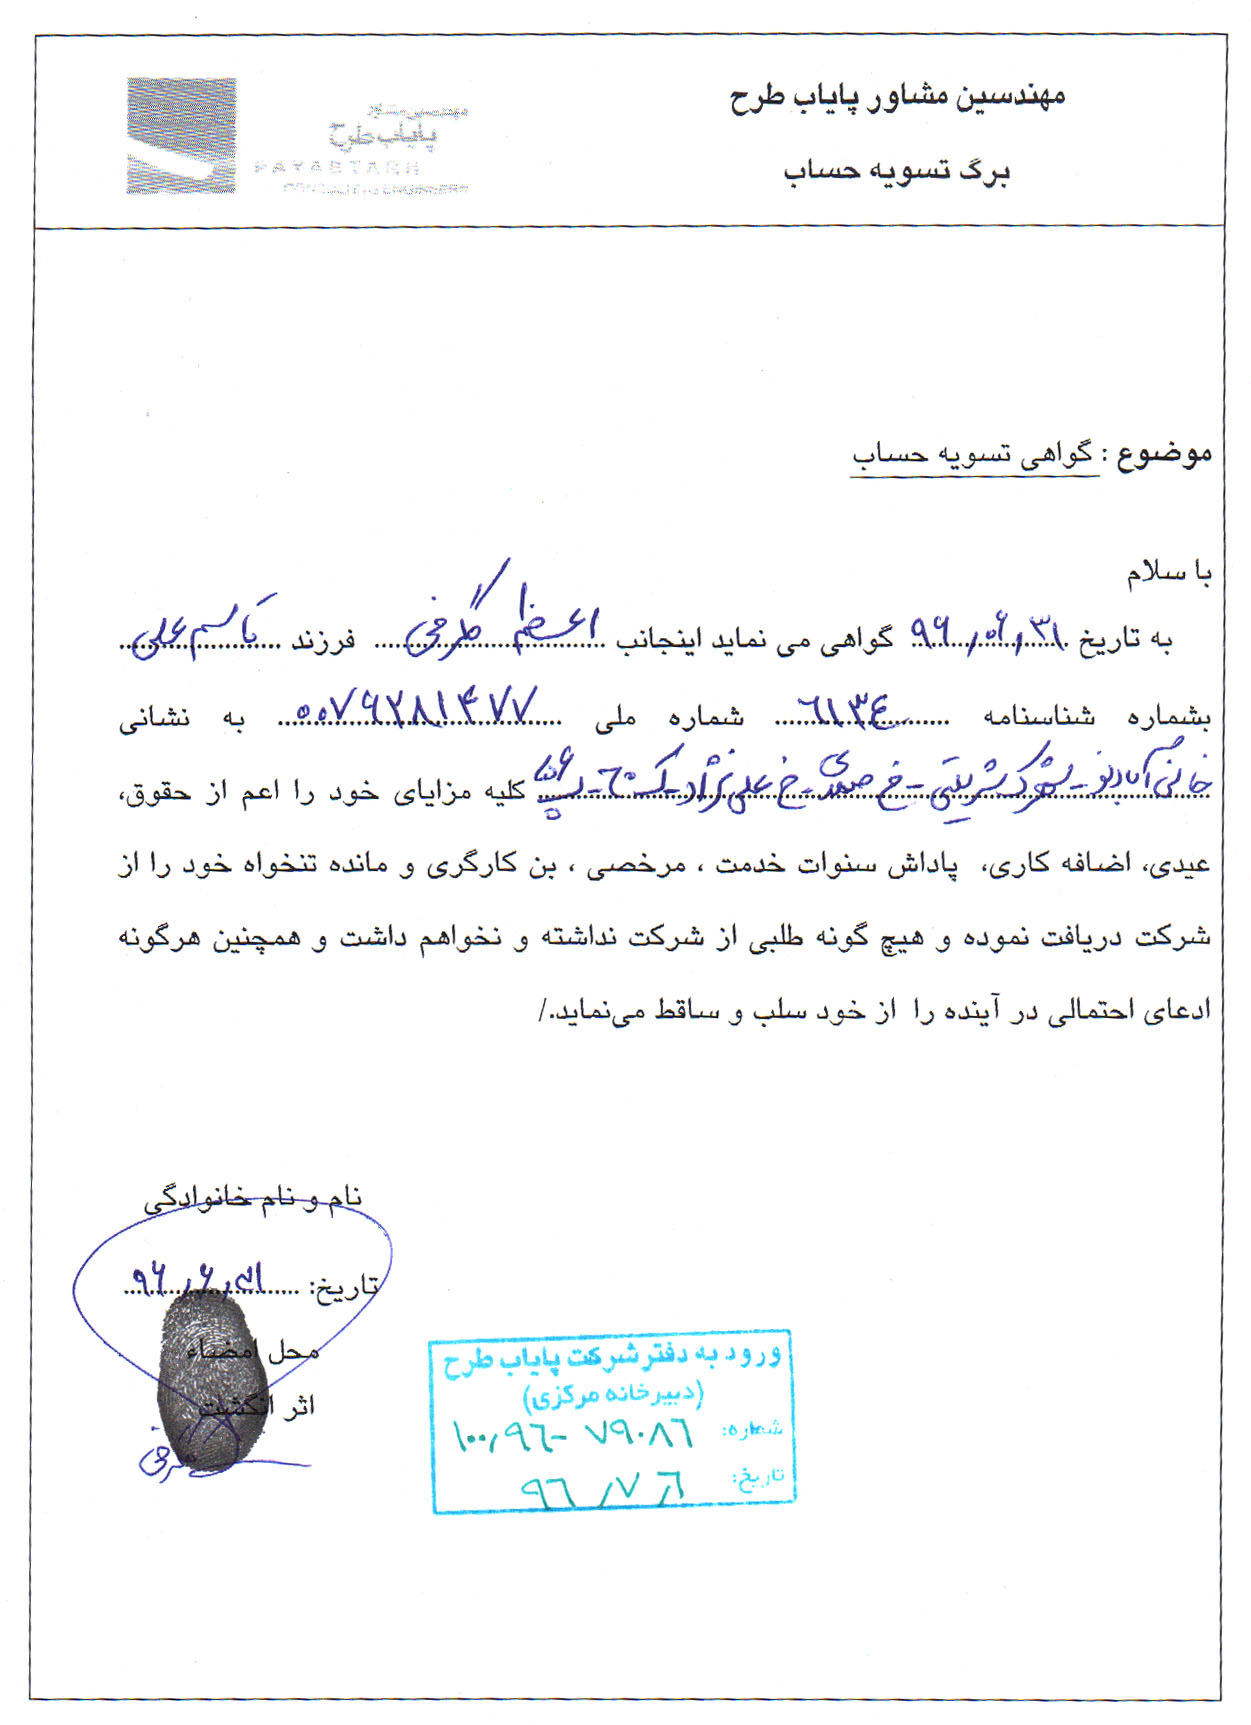 مهندسین مشاور پایاب طرح
برگ تسویه حساب
مهندسین مشاور
پایاب طرح
PAYAB TARH
CONSULTING ENGINEERS
موضوع : گواهی تسویه حساب
با سلام
به تاریخ ۹۶/۰۶/۳۱ گواهی می نماید اینجانب اعظم فرزند علی
بشماره شناسنامه ٦١٣٤ شماره ملی ۰۰۷۹۲۸۱۴۷۷ به نشانی
خانی آباد نو - شهرک شریعتی - خ - خ علی نژاد - ک ٦٠ - پ ۵۶ کلیه مزایای خود را اعم از حقوق،
عیدی، اضافه کاری، پاداش سنوات خدمت ، مرخصی ، بن کارگری و مانده تنخواه خود را از
شرکت دریافت نموده و هیچ گونه طلبی از شرکت نداشته و نخواهم داشت و همچنین هرگونه
ادعای احتمالی در آینده را از خود سلب و ساقط می‌نماید./
نام و نام خانوادگی
تاریخ: ۹۶/۶/۳۱
محل امضاء
اثر انگشت
ورود به دفتر شرکت پایاب طرح
(دبیرخانه مرکزی)
شماره: ١٠٠/٩٦-٧٩٠٨٦
تاریخ: ٩٦/٧/٦